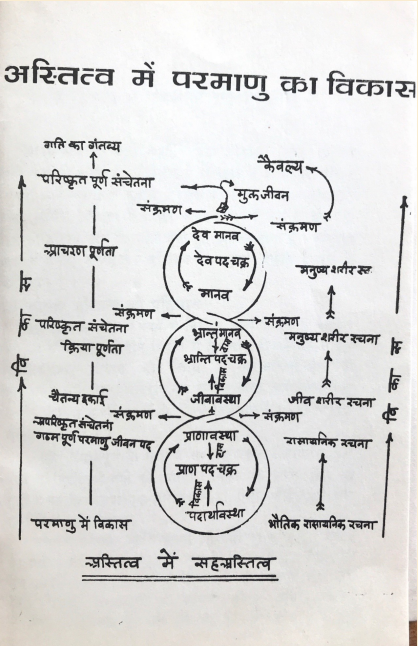 अस्तित्व में परमाणु का विकास
गति का गंतव्य
परिष्कृत पूर्ण संचेतना
आचरण पूर्णता
परिष्कृत संचेतना
क्रिया पूर्णता
चैतन्य इकाई
अपरिष्कृत संचेतना
गठन पूर्ण परमाणु जीवन पद
परमाणु में विकास
विकास
कैवल्य
मुक्त जीवन
संक्रमण
संक्रमण
देव मानव
देव पद चक्र
मानव
संक्रमण
संक्रमण
भ्रान्त मानव
ह्रास
भ्रान्ति पद चक्र
विकास
जीवावस्था
संक्रमण
संक्रमण
प्राणावस्था
ह्रास
प्राण पद चक्र
विकास
पदार्थावस्था
मनुष्य शरीर स्तर
मनुष्य शरीर रचना
जीव शरीर रचना
रासायनिक रचना
भौतिक रासायनिक रचना
विकास
अस्तित्व में सहअस्तित्व